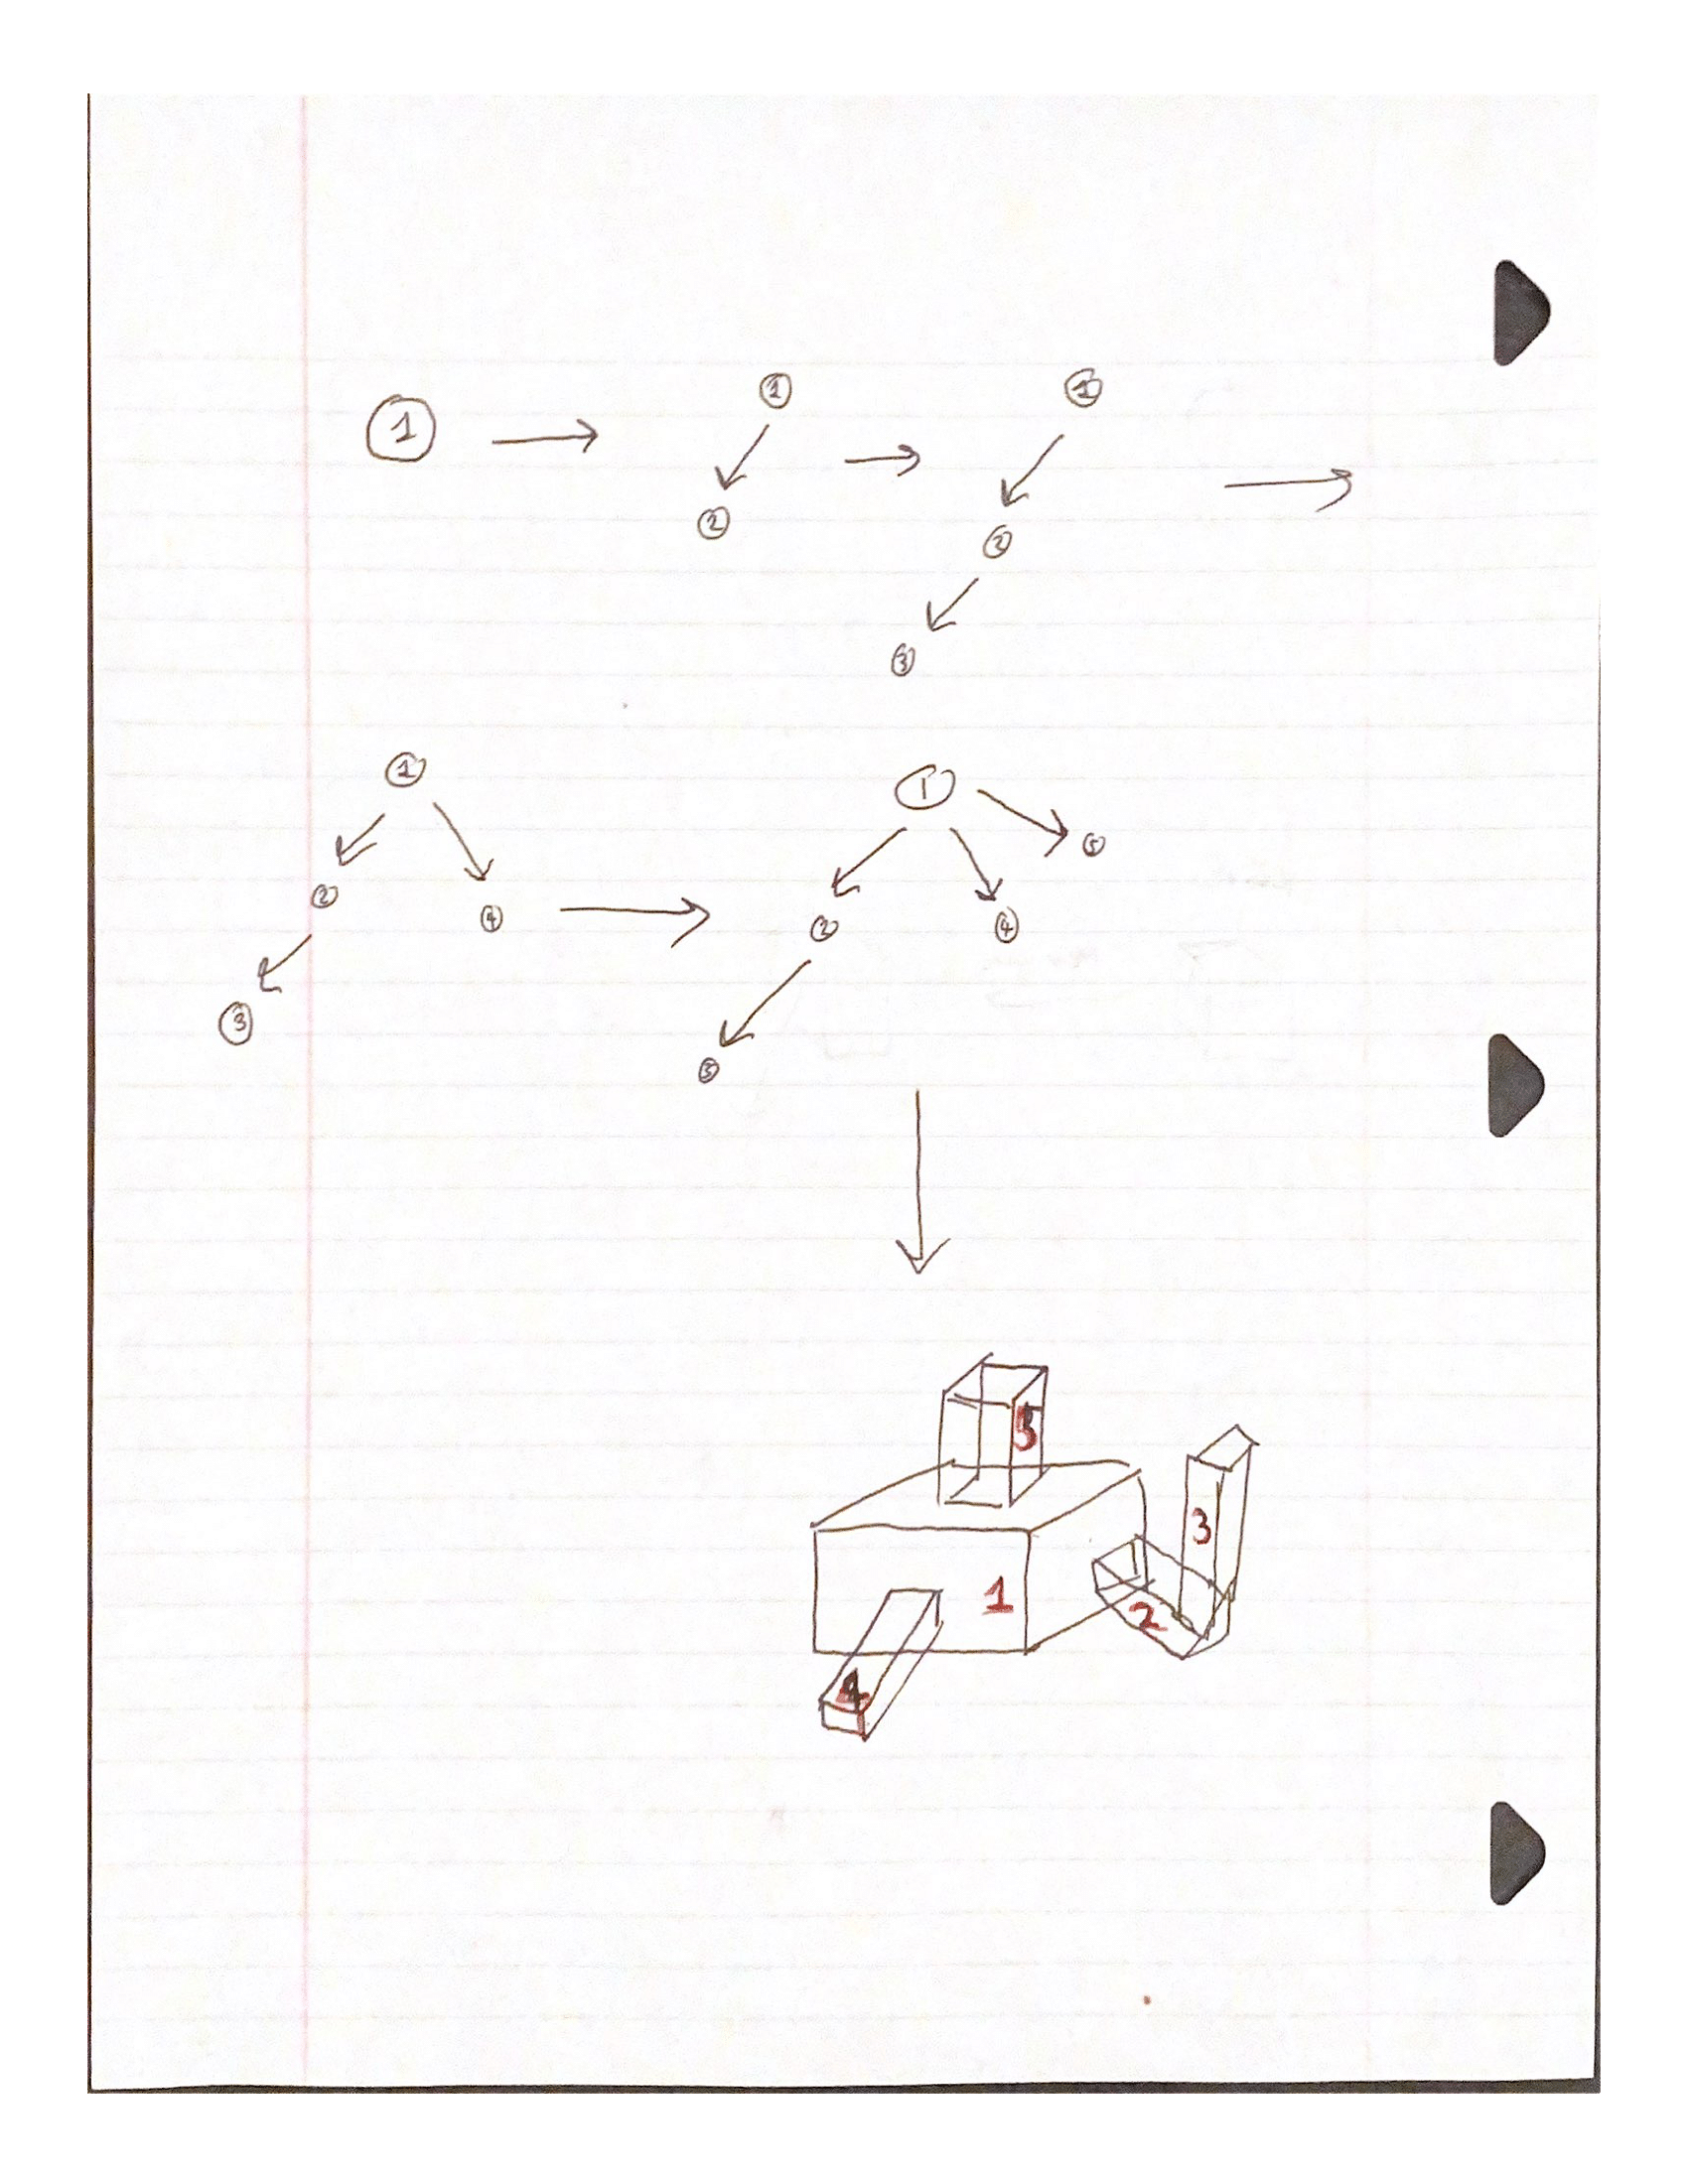 1
1
2
1
2
3
1
2
4
3
1
5
2
4
3
5
3
1
2
4